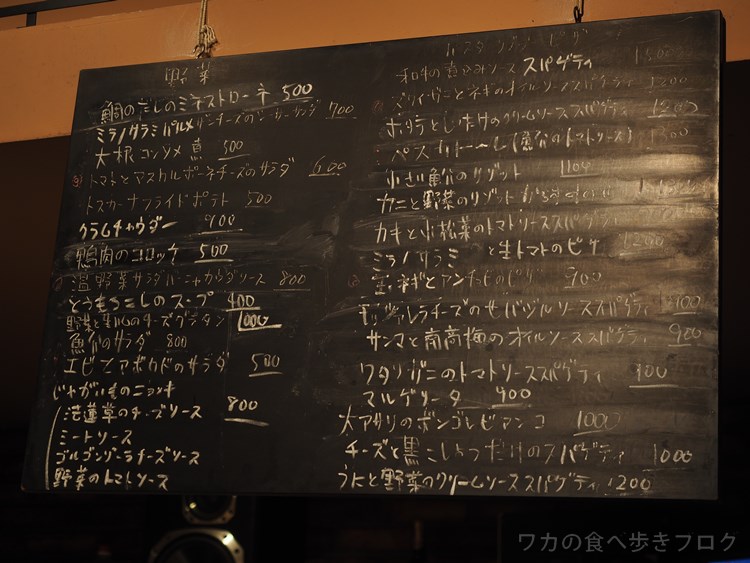 野菜
鯛のだしのミネストローネ 500
ミラノサラミパルメザンチーズのシーザーサラダ 700
大根コンソメ煮 500
トマトとマスカルポーネチーズのサラダ 600
トスカーナフライドポテト 500
クラムチャウダー 900
鴨肉のコロッケ 500
温野菜サラダバーニャカウダソース 800
とうもろこしのスープ 400
野菜と のチーズグラタン 1000
魚介のサラダ 800
エビとアボカドのサラダ 500
じゃがいものニョッキ
菠蓮草のチーズソース 800
ミートソース
ゴルゴンゾーラチーズソース
野菜のトマトソース
パスタ リゾット ピザ
和牛の煮込みソース スパゲティ 1500
とネギのオイルソーススパゲティ 1200
ポルチーニとしたけのクリームソーススパゲティ 1200
ペスカトーレ(魚介のトマトソース) 1300
小さい魚介のリゾット 1100
カニと野菜のリゾット
カキと小松菜のトマトソーススパゲティ
ミラノサラミと生トマトのピザ 1200
玉ねぎとアンチョビのピザ 900
モッツァレラチーズのせバジルソーススパゲティ 1100
サンマと南高梅のオイルソーススパゲティ 900
ワタリガニのトマトソーススパゲティ 900
マルゲリータ 900
大アサリのボンゴレビアンコ 1000
チーズと黒こしょうだけのスパゲティ 1000
うにと野菜のクリームソーススパゲティ 1200
ワカの食べ歩きブログ